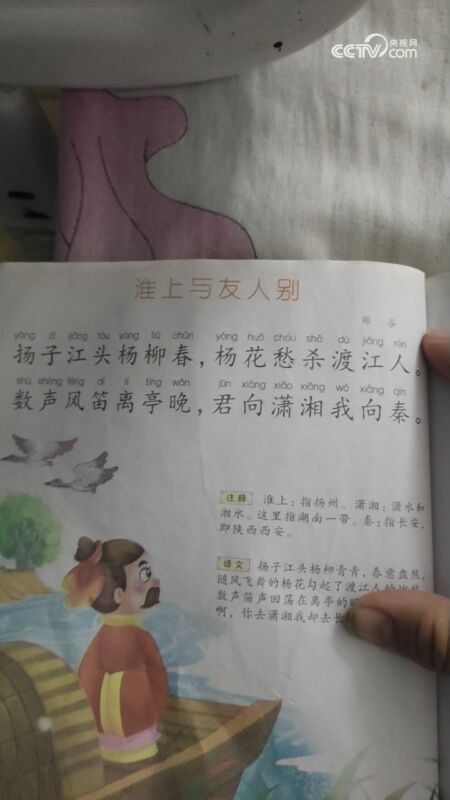 CCTV 央视网
com
淮上与友人别
郑谷
yáng zǐ jiāng tóu yáng liǔ chūn yáng huā chóu shā dù jiāng rén
扬子江头杨柳春，杨花愁杀渡江人。
shù shēng fēng dí lí tíng wǎn jūn xiàng xiāo xiāng wǒ xiàng qín
数声风笛离亭晚，君向潇湘我向秦。
注释 淮上：指扬州。潇湘：潇水和
湘水。这里指湖南一带。秦：指长安，
即陕西西安。
译文 扬子江头杨柳青青，春意盎然，
随风飞舞的杨花勾起了渡江人的
数声笛声回荡在离亭的
啊，你去潇湘我却去长